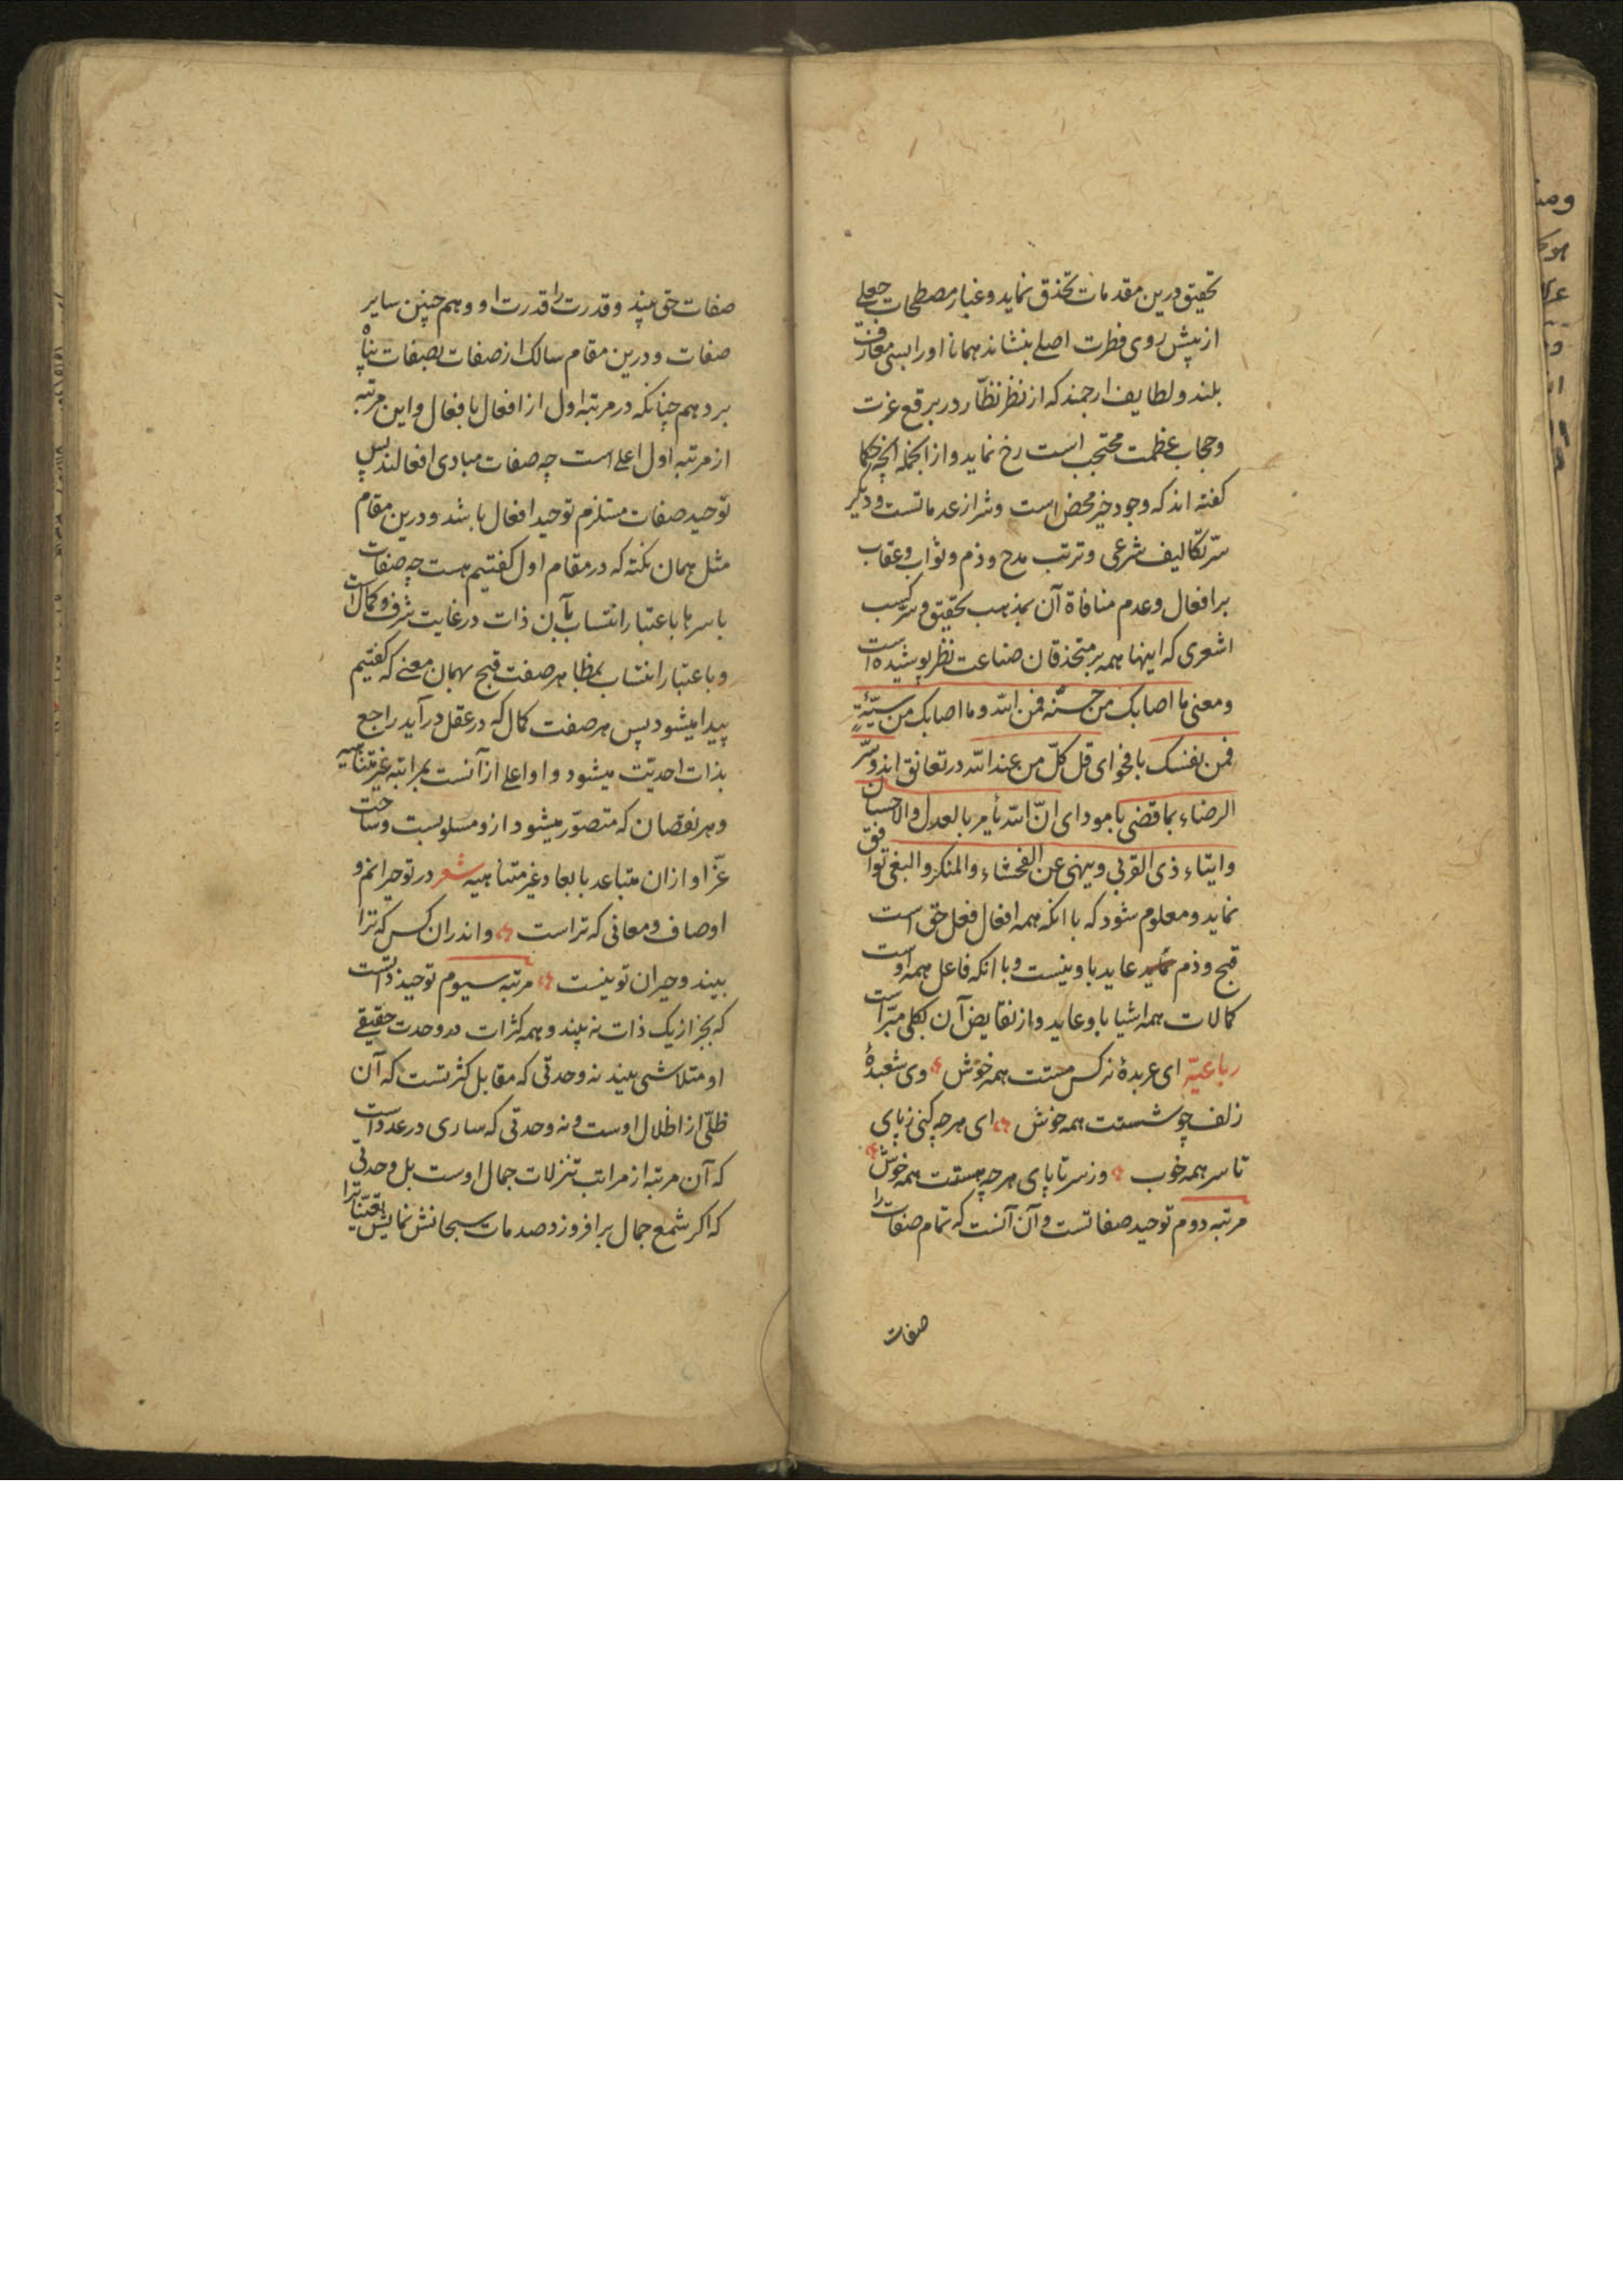 تحقیق درین مقدمات تحذق نماید و غبار مصطلحات جعلی
از پیش روی فطرت اصلی بنشاند همانا او را بسی معارف
بلند و لطایف ارجمند که از نظر نظّار در برقع عزت
و حجاب عظمت محتجب است رخ نماید و از انجمله آنچه حکما
کفته اند که وجود خیر محض است و شر از عدماتست و دیکر
سرّ تکالیف شرعی و ترتب مدح و ذم و ثواب و عقاب
بر افعال و عدم منافاة آن بمذهب تحقیق و سر کسب
اشعری که اینها همه بر متحذقان صناعت نظر پوشیده است
و معنی ما اصابک من حسنة فمن الله و ما اصابک من سیّئةٍ
فمن نفسک با فحوای قل کلّ من عند الله در تعانق اند و سرّ
الرضاء بما قضی با موداى انّ الله یأمر بالعدل والاحسان
وایتاء ذی القربی وینهی عن الفحشاء والمنکر والبغی توافق
نماید و معلوم شود که با انکه همه افعال فعل حق است
قبح و ذم عاید باو نیست و با انکه فاعل همه اوست
کمالات همه اشیا باو عاید و از نقایض آن بکلی مبرّاست
رباعیّه ای عربدۀ نرکس مستت همه خوش وی شعبدۀ
زلف چو شستت همه خوش ای هرچه کنی ز پای
تا سر همه خوب وز سر تا پای هرچه هستت همه خوش
مرتبه دوم توحید صفاتست و آن آنست که تمام صفات را
صفات
صفات حق بیند و قدرت را قدرت او و هم چنین سایر
صفات و درین مقام سالک از صفات بصفات پناه
برد هم چنانکه در مرتبه اول از افعال بافعال و این مرتبه
از مرتبه اول اعلی است چه صفات مبادی افعالند پس
توحید صفات مستلزم توحید افعال باشد و درین مقام
مثل همان نکته که در مقام اول کفتیم هست چه صفات
باسرها باعتبار انتساب بآن ذات در غایت شرف و کمال است
و باعتبار انتساب بمظاهر صفت قبح بهمان معنی که کفتیم
پیدا میشود پس هر صفت کمال که در عقل در آید راجع
بذات احدیّت میشود و او اعلی از آنست بمراتبه غیر متناهیه
و هر نقصان که متصوّر میشود ازو مسلوبست و ساحت
عزّ او از ان متباعد بابعاد غیر متناهیه شعر در تو حیرانم و
اوصاف و معانی که تراست و اندران کس که ترا
بیند و حیران تو نیست مرتبه سیوم توحید ذاتست
که بجز از یک ذات نه بیند و همه کثرات در وحدت حقیقی
او متلاشی بیند نه وحدتی که مقابل کثرتست که آن
ظلّی از اظلال اوست و نه وحدتی که ساری در عدد است
که آن مرتبه از مراتب تنزلات جمال اوست بل وحدتی
که اکر شمع جمال بر افروزد صدمات سبحانش نمایش تعیّنات را